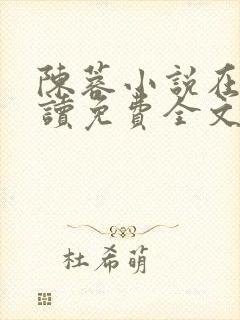 陳蓉小說在
讀免費全文
杜希萌